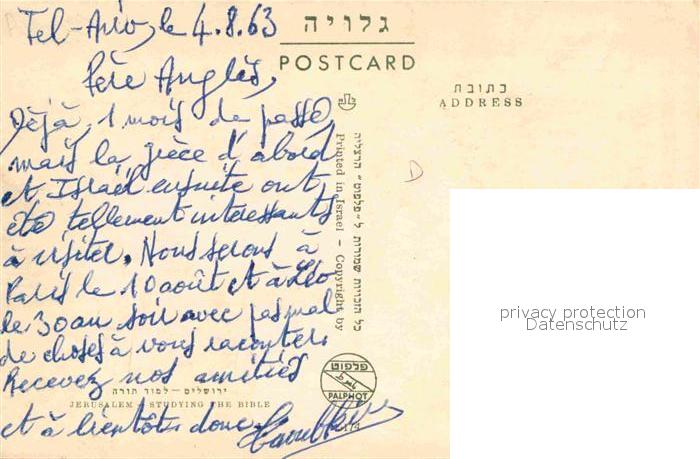 Tel-Aviv, le 4.8.63
Père Anglès,
Déjà, 1 mois de passé,
mais la grèce d'abord
et Israël ensuite ont
été tellement intéressants
à visiter. Nous serons à
Paris le 10 août et à
le 30 au soir avec pas mal
de choses à vous raconter.
Recevez nos amitiés
et à bientôt donc.
גלויה
POSTCARD
כתובת
ADDRESS
כל הזכויות שמורות ל"פלפוט" הרצליה
Printed in Israel – Copyright by
פלפוט
PALPHOT
ירושלים – למוד תורה
JERUSALEM – STUDYING THE BIBLE
D
privacy protection
Datenschutz